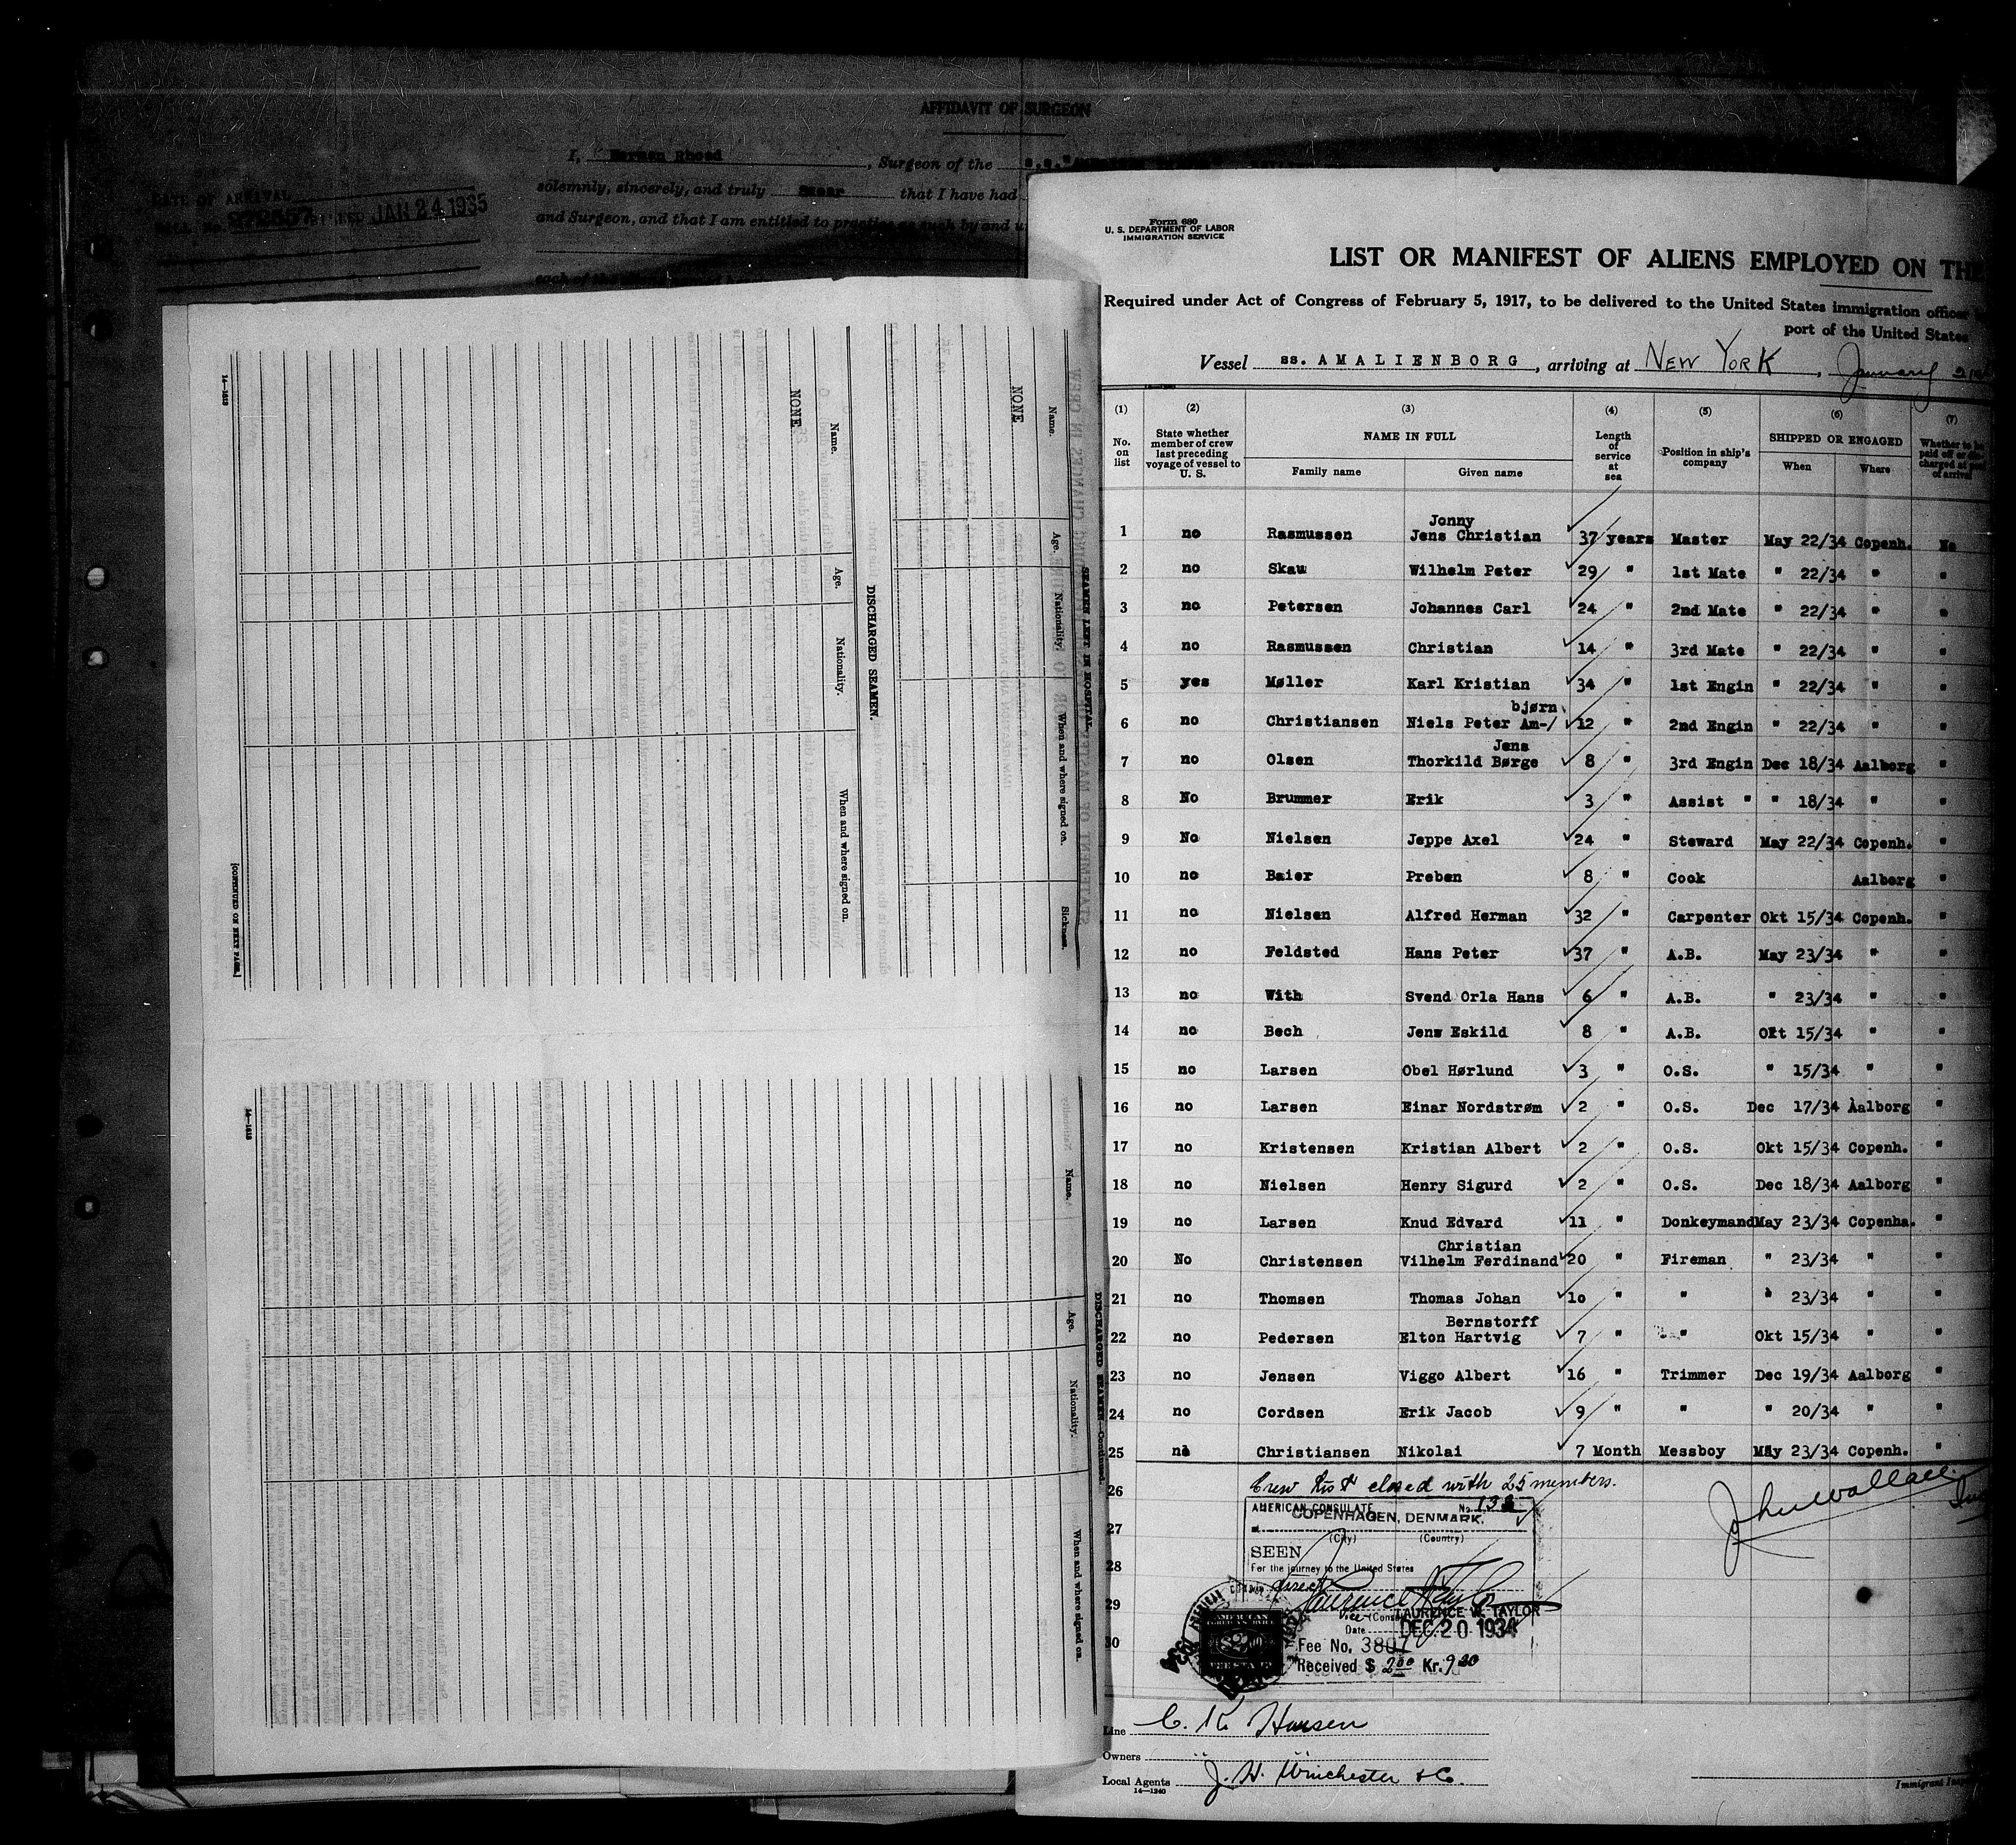 AFFIDAVIT OF SURGEON
I, Herman Rhoad, Surgeon of the
solemnly, sincerely, and truly swear that I have had
and Surgeon, and that I am entitled to practice as such by and
DATE OF ARRIVAL
JAN 24 1935
SEAMEN LEFT IN HOSPITAL
Name. Age. Nationality. When and where signed on. Sickness.
NONE
DISCHARGED SEAMEN.
Name. Age. Nationality. When and where signed on.
NONE
14—1613
[CONTINUED ON NEXT PAGE.]
DISCHARGED SEAMEN—Continued.
Name. Age. Nationality. When and where signed on.
14—1613
Form 680
U. S. DEPARTMENT OF LABOR
IMMIGRATION SERVICE
LIST OR MANIFEST OF ALIENS EMPLOYED ON THE
Required under Act of Congress of February 5, 1917, to be delivered to the United States immigration officer
port of the United States
Vessel ss. AMALIENBORG, arriving at NEW YORK, January
(1) (2) (3) (4) (5) (6) (7)
No. on list
State whether member of crew last preceding voyage of vessel to U. S.
NAME IN FULL
Family name Given name
Length of service at sea
Position in ship's company
SHIPPED OR ENGAGED
When Where
Whether to be paid off or discharged at port of arrival
1 no Rasmussen Jonny Jens Christian 37 years Master May 22/34 Copenh. No
2 no Skau Wilhelm Peter 29 " 1st Mate " 22/34 " "
3 no Petersen Johannes Carl 24 " 2nd Mate " 22/34 " "
4 no Rasmussen Christian 14 " 3rd Mate " 22/34 " "
5 yes Møller Karl Kristian 34 " 1st Engin " 22/34 " "
6 no Christiansen Niels Peter Am-/bjørn 12 " 2nd Engin " 22/34 " "
7 no Olsen Jens Thorkild Børge 8 " 3rd Engin Dec 18/34 Aalborg "
8 No Brummer Erik 3 " Assist " " 18/34 " "
9 No Nielsen Jeppe Axel 24 " Steward May 22/34 Copenh. "
10 no Baier Preben 8 " Cook Aalborg "
11 no Nielsen Alfred Herman 32 " Carpenter Okt 15/34 Copenh. "
12 no Feldsted Hans Peter 37 " A.B. May 23/34 " "
13 no With Svend Orla Hans 6 " A.B. " 23/34 " "
14 no Bech Jens Eskild 8 " A.B. Okt 15/34 " "
15 no Larsen Obel Hørlund 3 " O.S. " 15/34 " "
16 no Larsen Einar Nordstrøm 2 " O.S. Dec 17/34 Aalborg "
17 no Kristensen Kristian Albert 2 " O.S. Okt 15/34 Copenh. "
18 no Nielsen Henry Sigurd 2 " O.S. Dec 18/34 Aalborg "
19 no Larsen Knud Edvard 11 " Donkeymand May 23/34 Copenha. "
20 No Christensen Christian Vilhelm Ferdinand 20 " Fireman " 23/34 " "
21 no Thomsen Thomas Johan 10 " " " 23/34 " "
22 no Pedersen Bernstorff Elton Hartvig 7 " " Okt 15/34 " "
23 no Jensen Viggo Albert 16 " Trimmer Dec 19/34 Aalborg "
24 no Cordsen Erik Jacob 9 " " " 20/34 " "
25 no Christiansen Nikolai 7 Month Messboy May 23/34 Copenh. "
26 Crew list closed with 25 members.
John Wallace
AMERICAN CONSULATE No.
27 COPENHAGEN, DENMARK.
(City) (Country)
SEEN
28 For the journey to the United States
direct
Laurence W. Taylor
29 LAURENCE W. TAYLOR
Vice (Consul)
Date DEC 20 1934
30 Fee No. 3807
Received $ 2.00 Kr. 9.20
Line C. K. Hansen
Owners "
Local Agents J. H. Winchester & Co.
14—1240